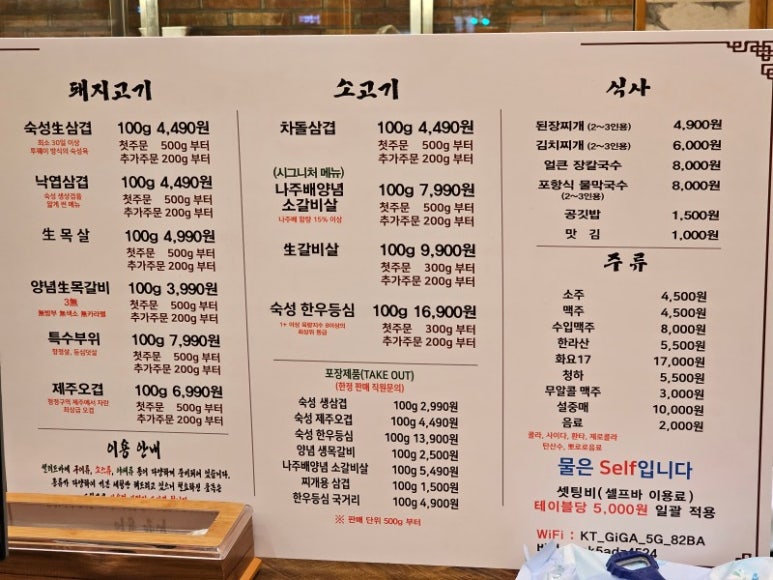 돼지고기
숙성生삼겹 100g 4,490원
최소 30일 이상
투웨이 방식의 숙성육
첫주문 500g 부터
추가주문 200g 부터
낙엽삼겹 100g 4,490원
숙성 생삼겹을
얇게 썬 메뉴
첫주문 500g 부터
추가주문 200g 부터
生목살 100g 4,990원
첫주문 500g 부터
추가주문 200g 부터
양념生목갈비 100g 3,990원
3無
無방부 無색소 無카라멜
첫주문 500g 부터
추가주문 200g 부터
특수부위 100g 7,990원
항정살, 등심덧살
첫주문 500g 부터
추가주문 200g 부터
제주오겹 100g 6,990원
청정구역 제주에서 자란
최상급 오겹
첫주문 500g 부터
추가주문 200g 부터
이용 안내
소고기
차돌삼겹 100g 4,490원
첫주문 500g 부터
추가주문 200g 부터
(시그니처 메뉴)
나주배양념 100g 7,990원
소갈비살
나주배 함량 15% 이상
첫주문 500g 부터
추가주문 200g 부터
生갈비살 100g 9,900원
첫주문 300g 부터
추가주문 200g 부터
숙성 한우등심 100g 16,900원
최상위 등급
첫주문 300g 부터
추가주문 200g 부터
포장제품(TAKE OUT)
(한정 판매 직원문의)
숙성 생삼겹 100g 2,990원
숙성 제주오겹 100g 4,490원
숙성 한우등심 100g 13,900원
양념 생목갈비 100g 2,500원
나주배양념 소갈비살 100g 5,490원
찌개용 삼겹 100g 1,500원
한우등심 국거리 100g 4,900원
※ 판매 단위 500g 부터
식사
된장찌개 (2~3인용) 4,900원
김치찌개 (2~3인용) 6,000원
얼큰 장칼국수 8,000원
포항식 물막국수 8,000원
(2~3인용)
공깃밥 1,500원
맛 김 1,000원
주류
소주 4,500원
맥주 4,500원
수입맥주 8,000원
한라산 5,500원
화요17 17,000원
청하 5,500원
무알콜 맥주 3,000원
설중매 10,000원
음료 2,000원
콜라, 사이다, 환타, 제로콜라
탄산수, 뽀로로음료
물은 Self입니다
셋팅비(셀프바 이용료)
테이블당 5,000원 일괄 적용
WiFi : KT_GiGA_5G_82BA